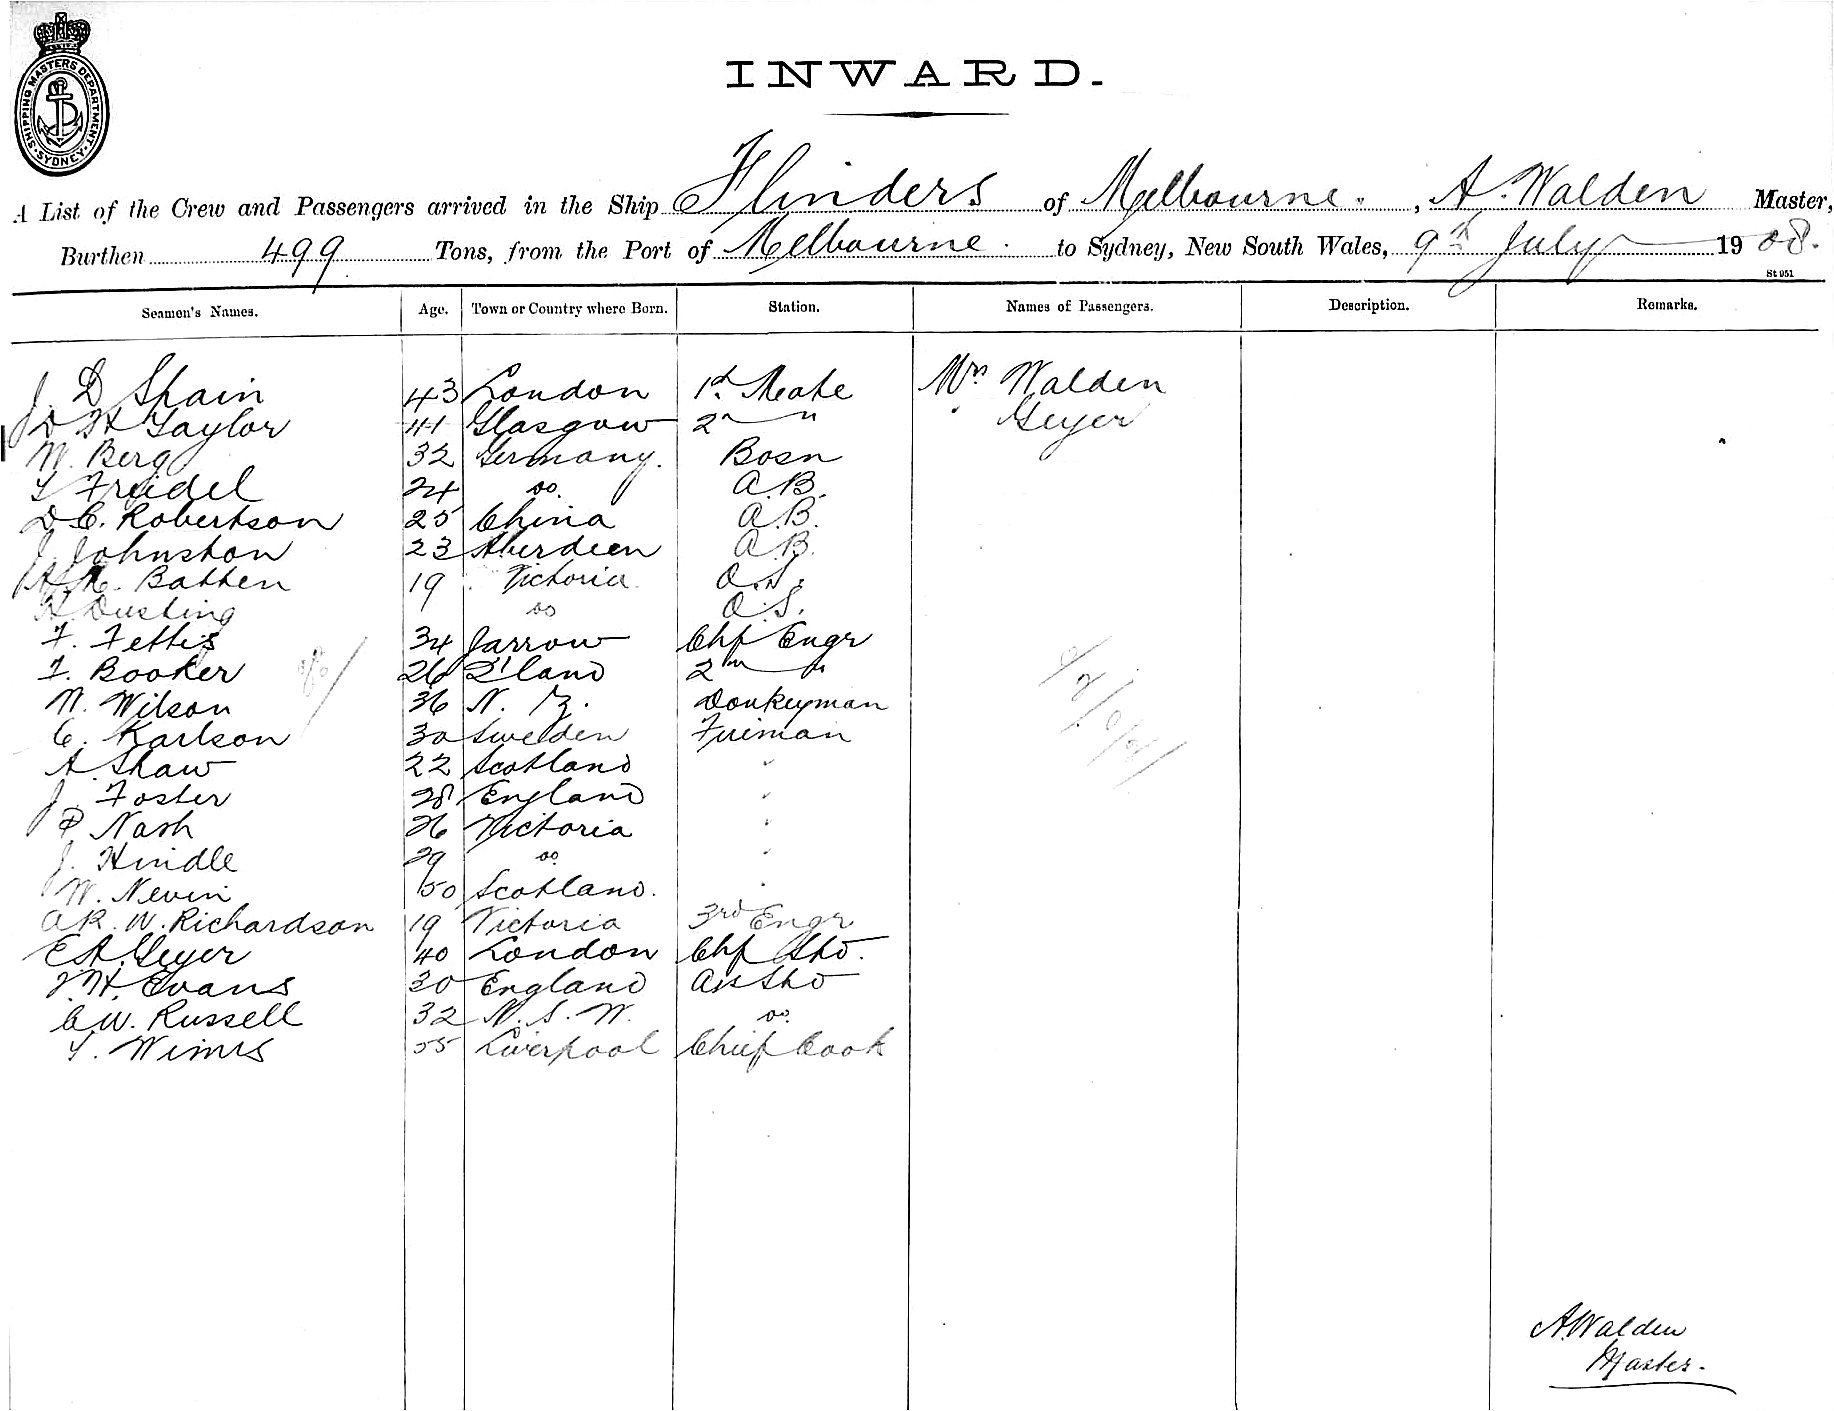 SHIPPING MASTERS DEPARTMENT
SYDNEY
INWARD.
A List of the Crew and Passengers arrived in the Ship Flinders of Melbourne. , A. Walden Master,
Burthen 499 Tons, from the Port of Melbourne. to Sydney, New South Wales, 9th July 1908.
St 951
Seamen's Names. Age. Town or Country where Born. Station. Names of Passengers. Description. Remarks.
J. D Shain 43 London 1st Mate Mrs Walden
D H Taylor 41 Glasgow 2n " " Geyer
W. Berg 32 Germany. Bosn
Freidel 24 do. A.B.
D C. Robertson 25 China A.B.
J Johnston 23 Aberdeen A.B.
Batten 19 Victoria O.S.
H Dusting do O.S.
F. Fettis 34 Jarrow Chf Engr
F. Booker 26 Q'land 2nd "
W. Wilson 36 N. Z. Donkeyman
C. Karlson 30 Sweden Fireman
A. Shaw 22 Scotland "
J. Foster 28 England "
P Nash 26 Victoria "
J. Hindle 29 do. "
W. Nevin 50 Scotland. "
A R. W. Richardson 19 Victoria 3rd Engr
E A. Geyer 40 London Chf Std.
H. Evans 30 England Ass Std
C. W. Russell 32 N. S. W. do.
Wimis 55 Liverpool Chief Cook
A. Walden
Master.